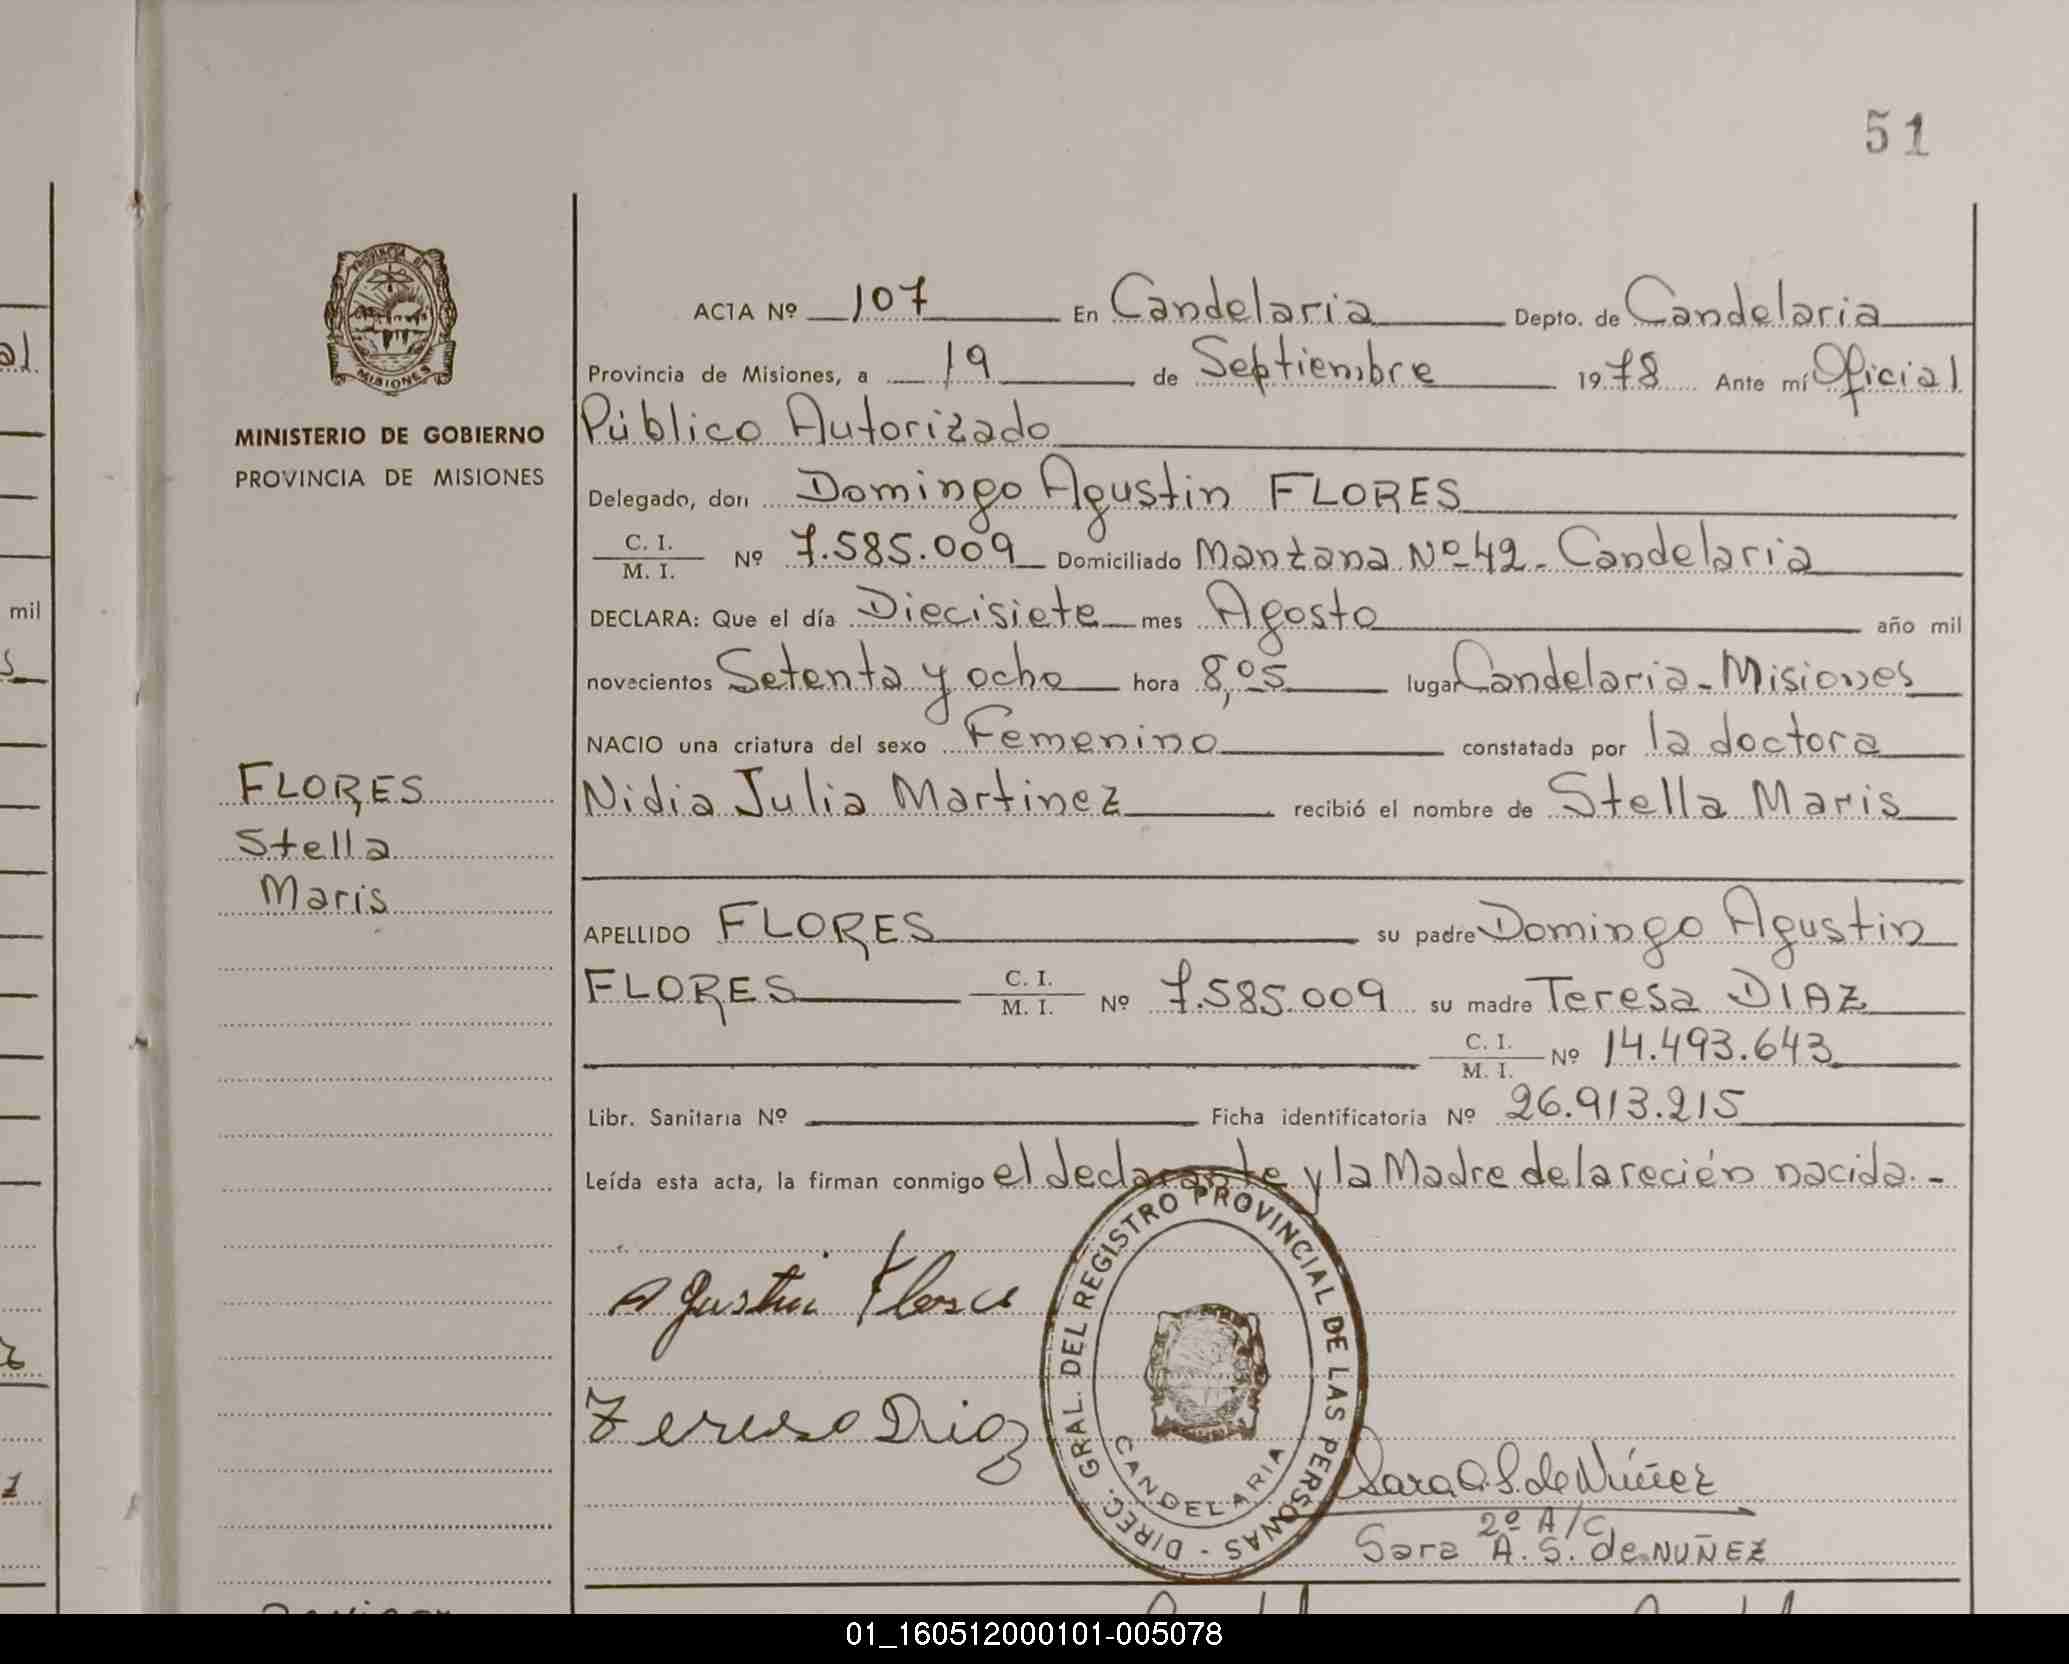 51
PROVINCIA DE
MISIONES
MINISTERIO DE GOBIERNO
PROVINCIA DE MISIONES
FLORES
Stella
Maris
ACTA Nº 107 En Candelaria Depto. de Candelaria
Provincia de Misiones, a 19 de Septiembre 1978 Ante mí Oficial
Público Autorizado
Delegado, don Domingo Agustin FLORES
C. I.
M. I. Nº 7.585.009 Domiciliado Manzana Nº 42 - Candelaria
DECLARA: Que el día Diecisiete mes Agosto año mil
novecientos Setenta y ocho hora 8,05 lugar Candelaria - Misiones
NACIO una criatura del sexo Femenino constatada por la doctora
Nidia Julia Martinez recibió el nombre de Stella Maris
APELLIDO FLORES su padre Domingo Agustin
FLORES C. I. M. I. Nº 7.585.009 su madre Teresa DIAZ
C. I. M. I. Nº 14.493.643
Libr. Sanitaria Nº Ficha identificatoria Nº 26.913.215
Leída esta acta, la firman conmigo el declarante y la Madre de la recién nacida.-
Agustin Flores
Teresa Diaz
DIREC. GRAL. DEL REGISTRO PROVINCIAL DE LAS PERSONAS -
CANDELARIA
Sara A. S. de Núñez
2º A/C
Sara A. S. de NUÑEZ
mil
01_160512000101-005078